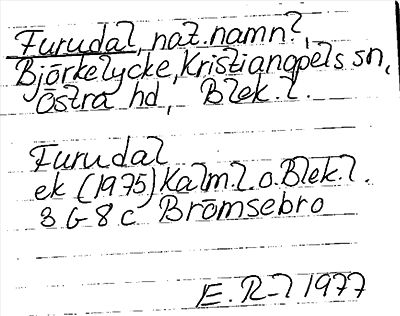 Furudal, nat.namn?,
Björkelycke, Kristianopels sn,
Östra hd, Blek.l.
Furudal
ek (1975) Kalm.l.o.Blek.l.
3 G 8 c Brömsebro
E.R-l 1977